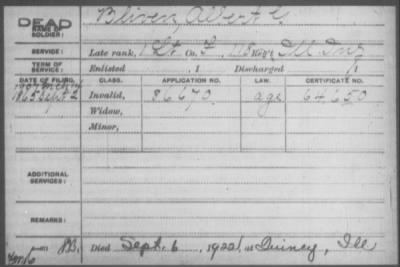 DEAD
NAME OF SOLDIER: Bliven, Albert G.
SERVICE: Late rank, 1 Lt Co. F, 118 Reg't Ill Inf
TERM OF SERVICE: Enlisted , 1 Discharged
DATE OF FILING. CLASS. APPLICATION NO. LAW. CERTIFICATE NO.
1865 Sept 2 Invalid, 86670. age 64650
Widow,
Minor,
ADDITIONAL SERVICES:
REMARKS:
Died Sept. 6, 1922, at Quincy, Ill